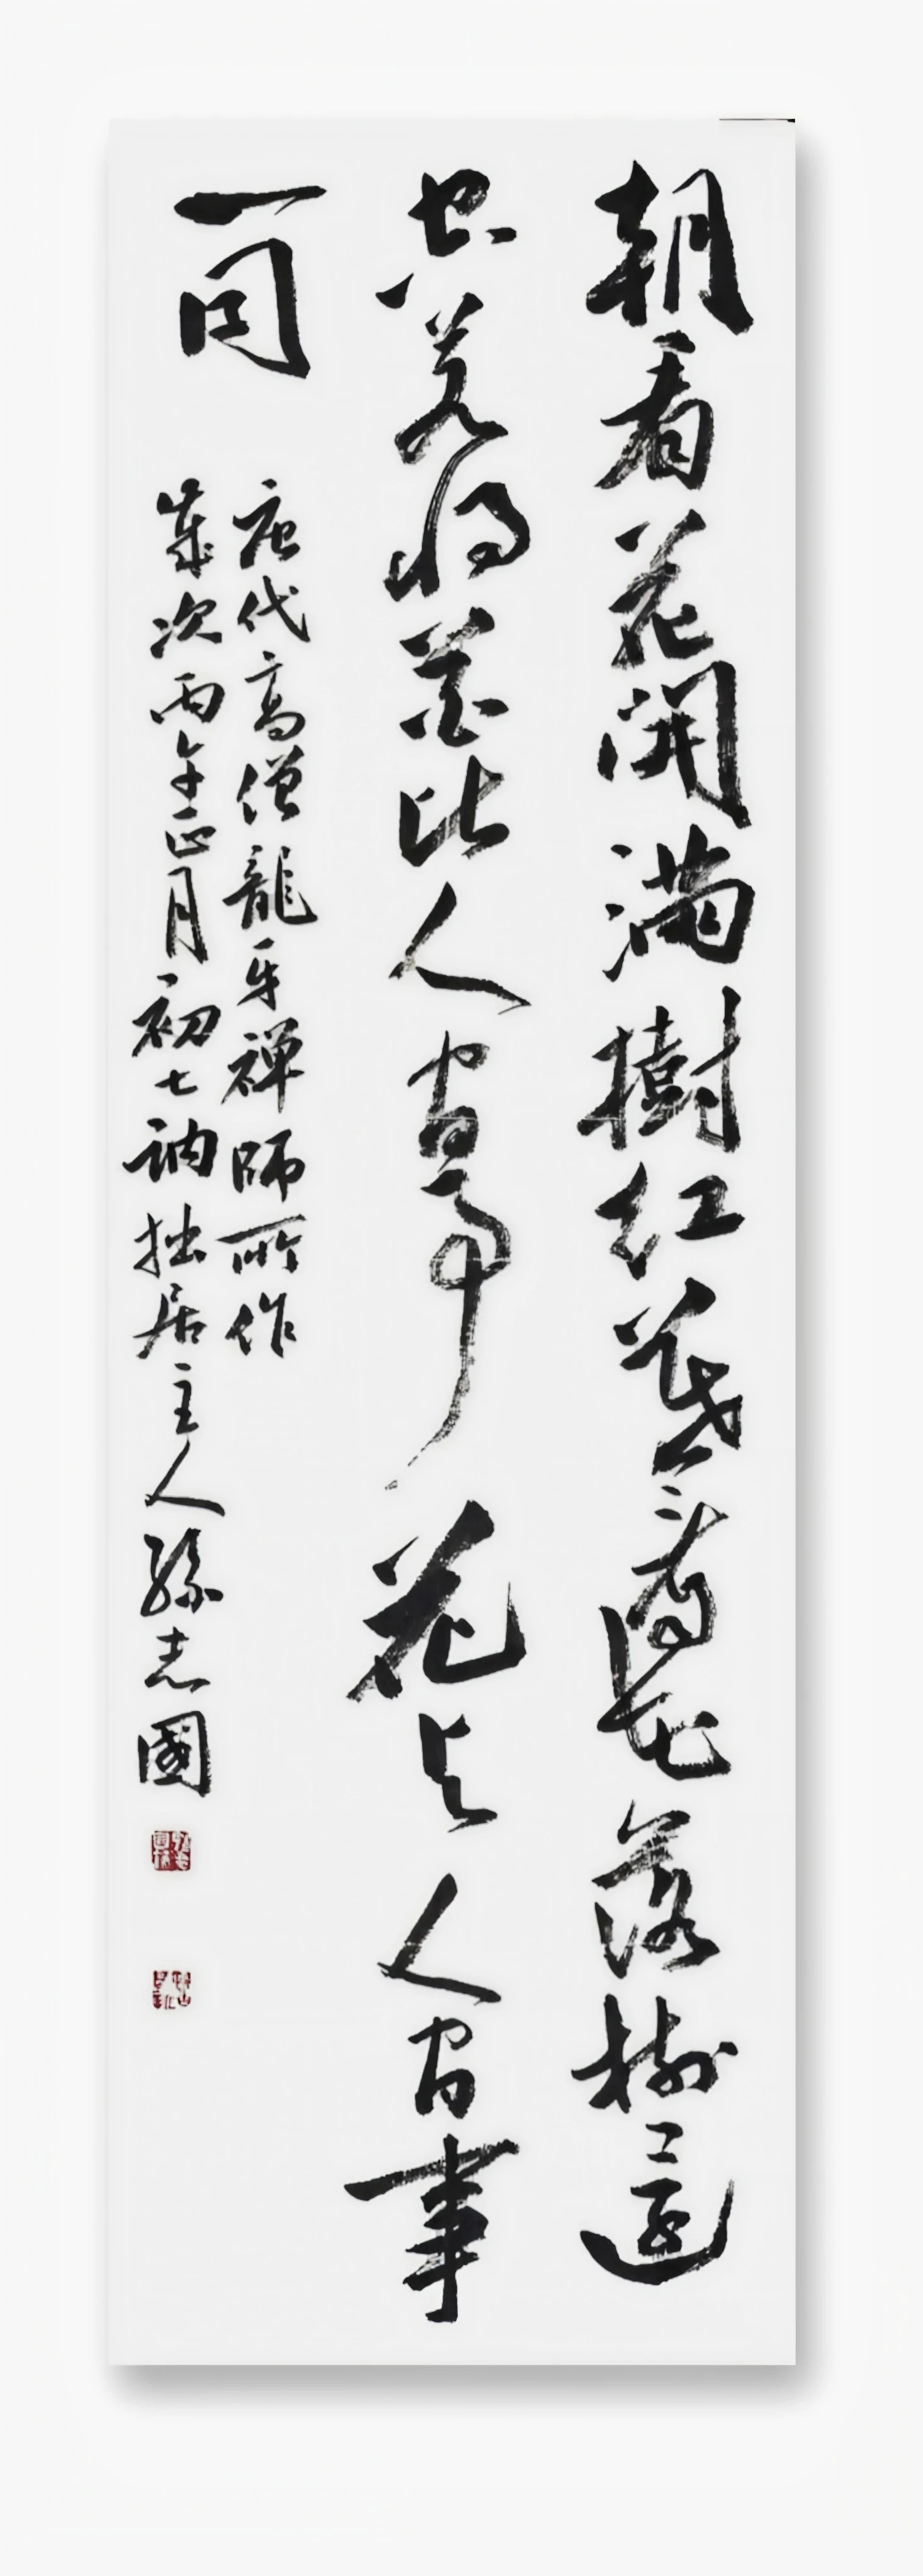 朝看花開滿樹紅暮看花落樹還
空若將花比人間事花與人間事
一同
唐代高僧龍牙禅師所作
歲次丙午正月初七訥拙居主人孫志國